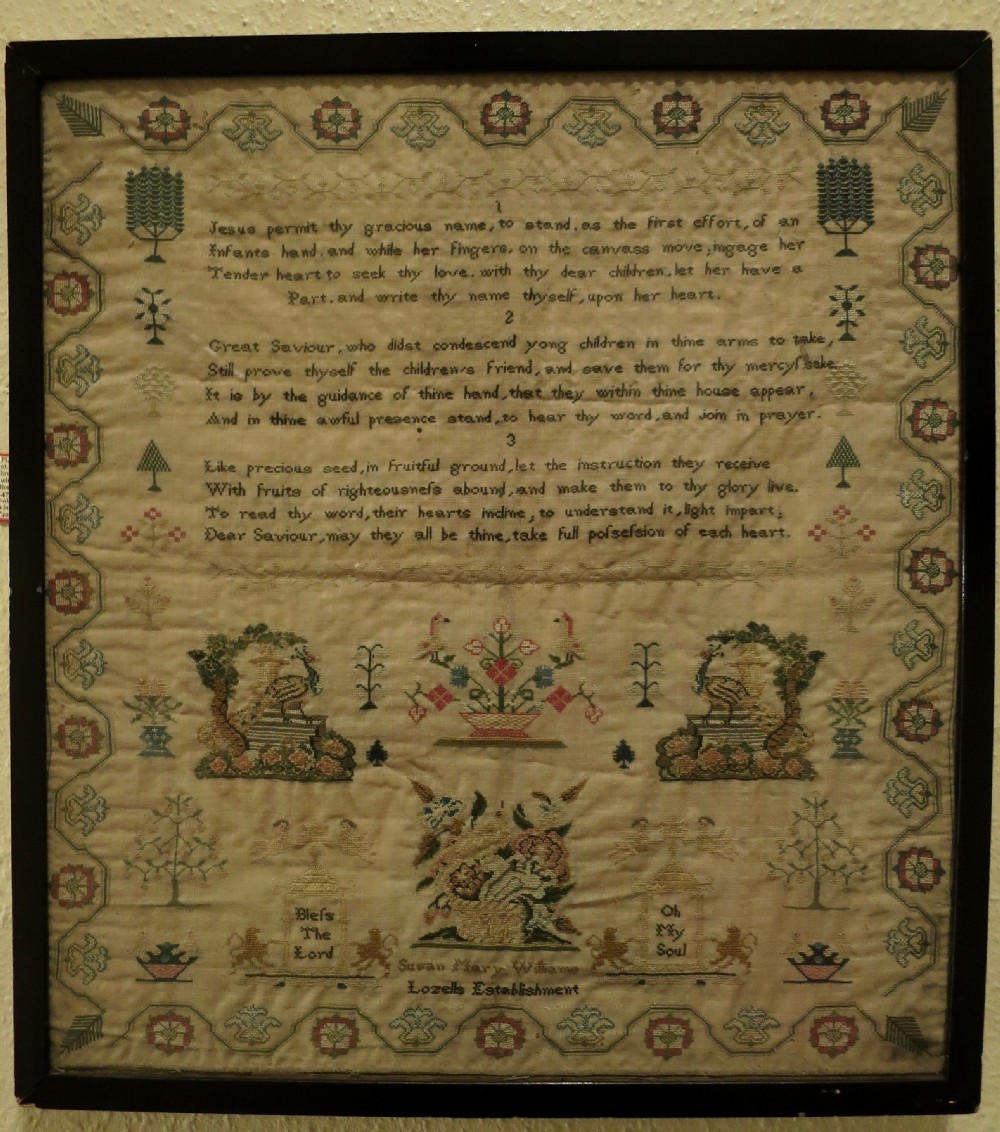 1
Jesus permit thy gracious name, to stand, as the first effort, of an
Infants hand, and while her fingers, on the canvass move, ingage her
Tender heart to seek thy love. with thy dear children, let her have a
Part, and write thy name thyself, upon her heart.
2
Great Saviour, who didst condescend yong children in thine arms to take,
Still prove thyself the children,s friend, and save them for thy mercyſ sake
It is by the guidance of thine hand, that they within thine house appear,
And in thine awful presence stand, to hear thy word, and join in prayer.
3
Like precious seed, in fruitful ground, let the instruction they receive
With fruits of righteousneſs abound, and make them to thy glory live.
To read thy word, their hearts incline, to understand it, light impart;
Dear Saviour, may they all be thine, take full poſseſsion of each heart.
Bleſs
The
Lord
Oh
My
Soul
Susan Mary Williams
Lozells Establishment